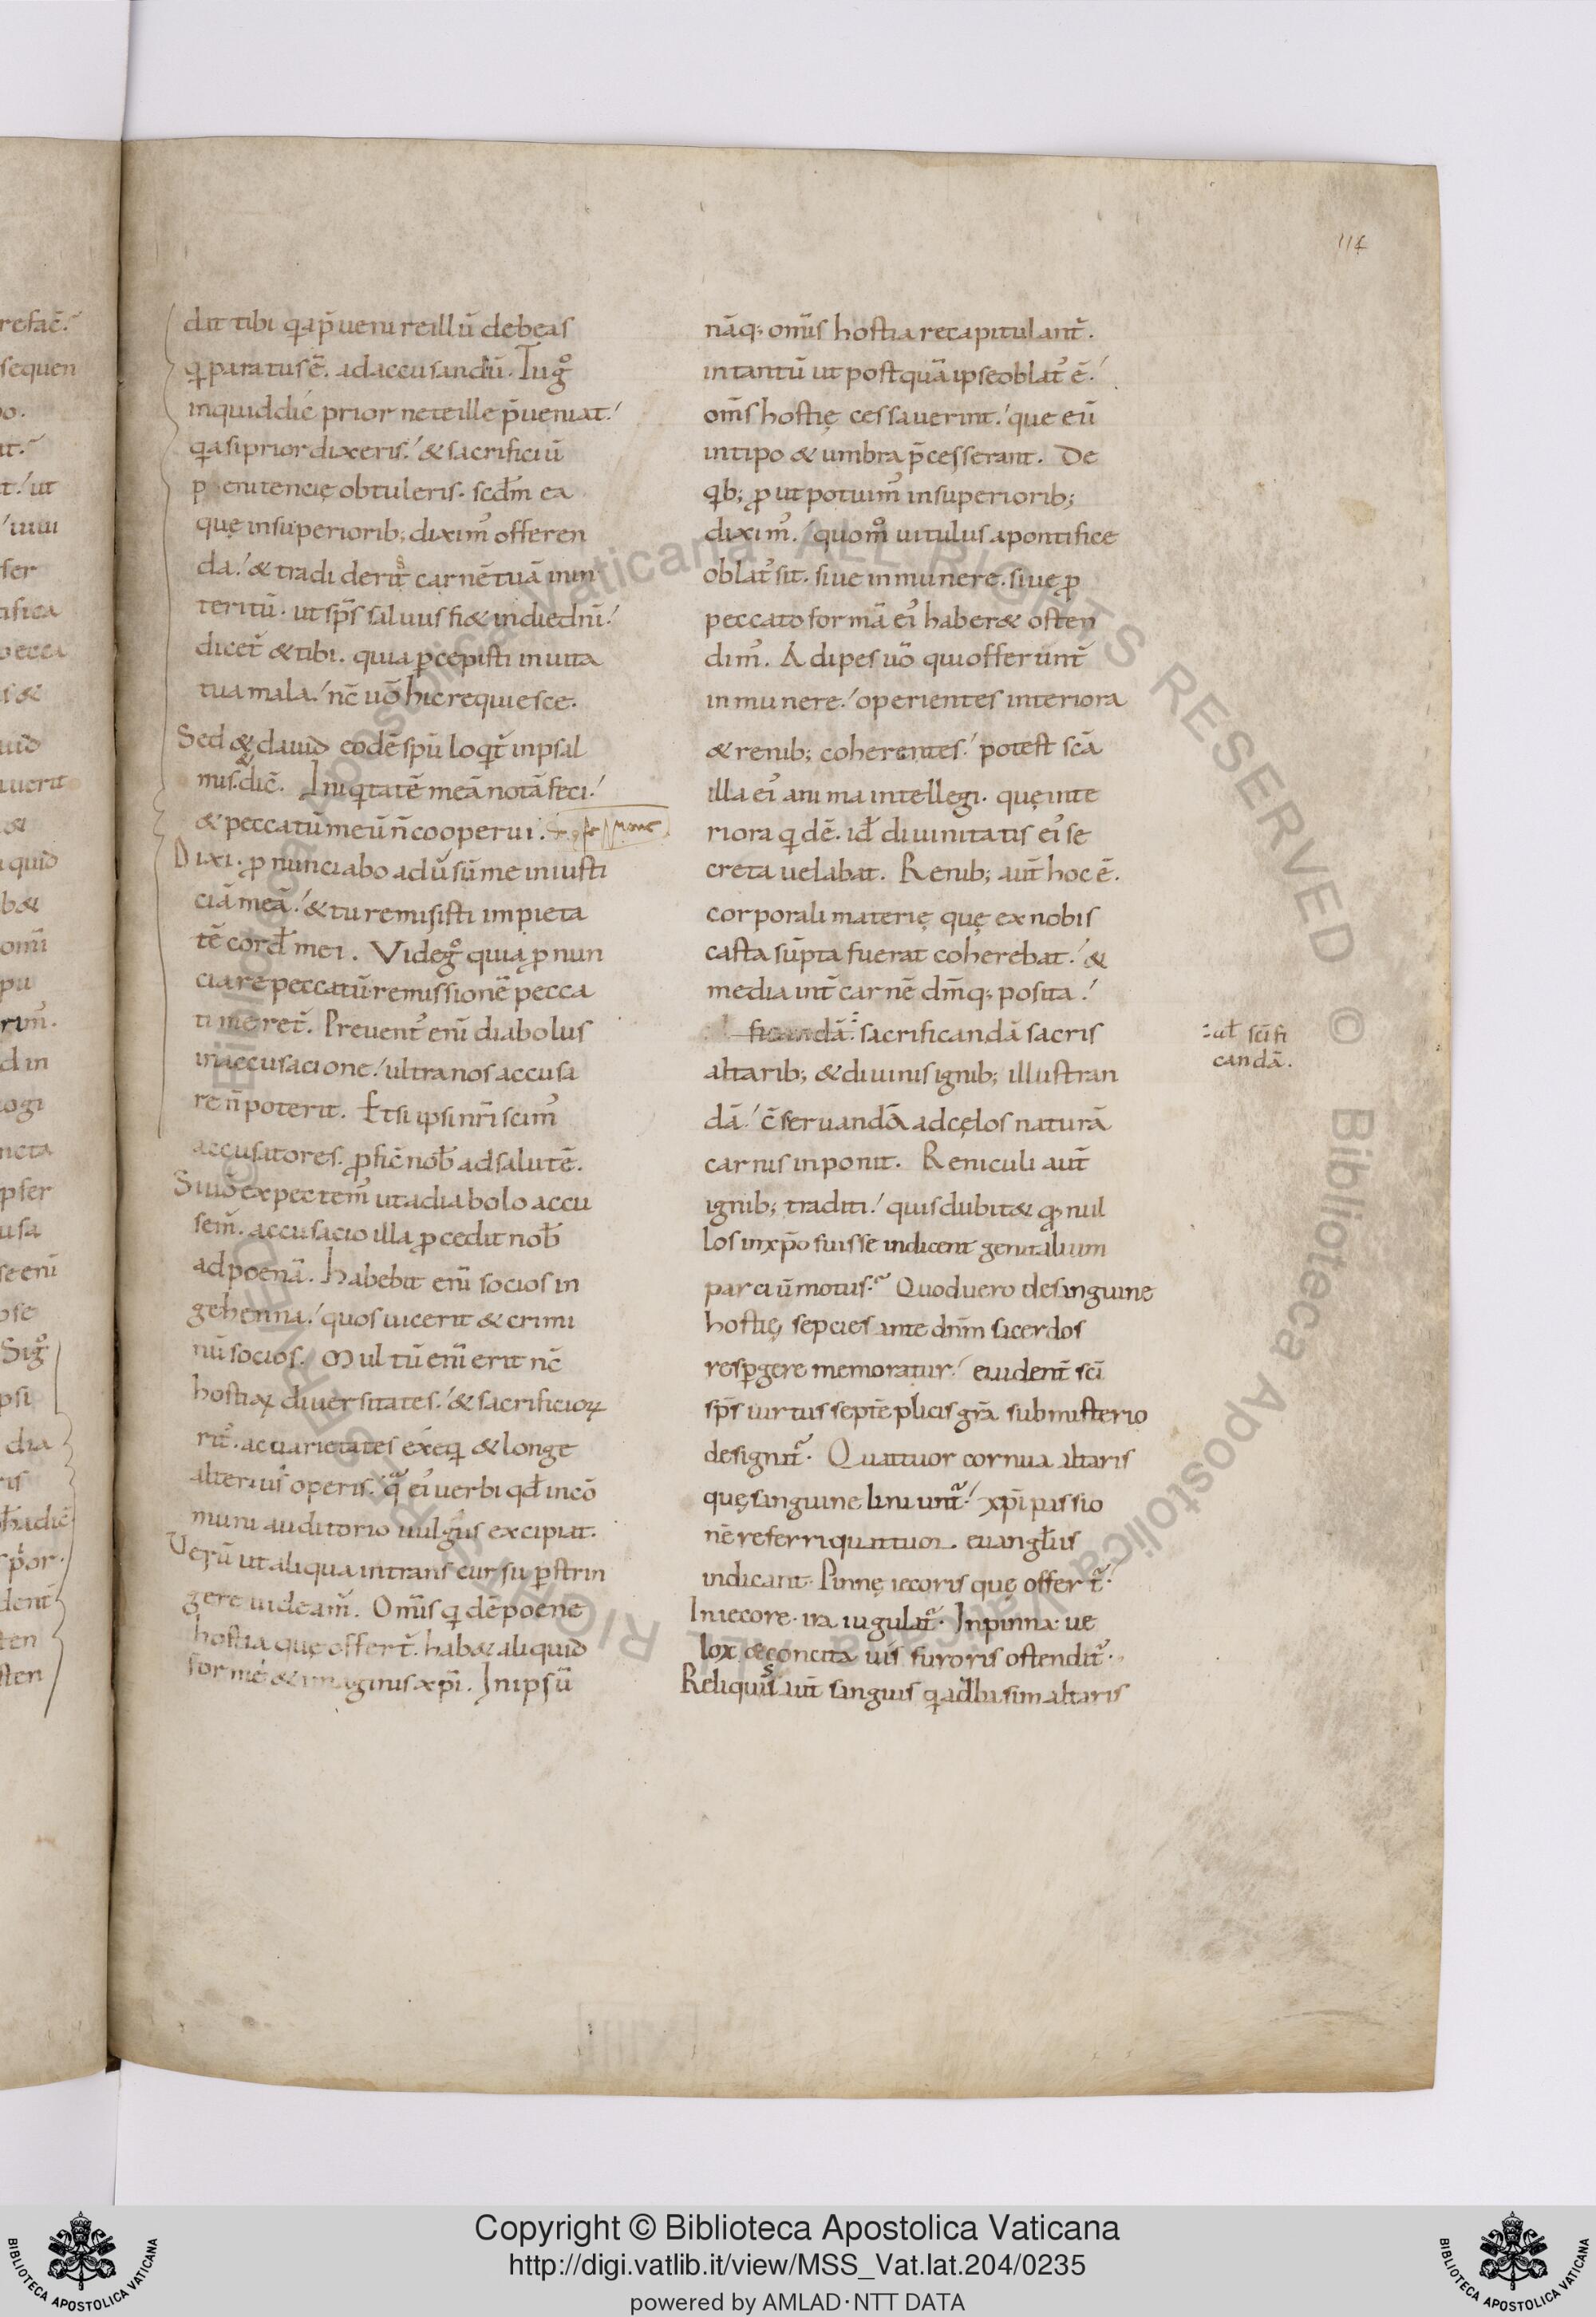 114
dit tibi qa p̄uenire illū debeas
qi paratus ē. ad accusandū. Tu gͦ
inquid dic prior ne te ille p̄ueniat.
qa si prior dixeris. & sacrificiū
penitencię obtuleris. scdm̄ ea
quę in superiorib; diximꝰ offeren
da. & tradiderit carnē tuā in in
teritū. ut sp̄s saluus fi& in die dn̄i.
dicet̄ & tibi. quia p̄cepisti in uita
tua mala. nc̄ uō hic requiesce.
Sed & dauid eodē spū loqt̄ in psal
mis. & dic̄. Iniqtatē meā notā feci.
& peccatū meū n̄ cooperui.
Dixi. pronunciabo aduersū me iniusti
ciā meā. & tu remisisti impieta
tē cord̄ mei. Vide gͦ quia pronun
ciare peccatū. remissionē pecca
ti meret̄. Preuentꝰ enī diabolus
in accusacione. ultra nos accusa
re n̄ poterit. Et si ipsi nr̄i simꝰ
accusatores. proficit nob̄ ad salutē.
Si uō expectemꝰ ut a diabolo accu
sem̄. accusacio illa procedit nob̄
ad poenā. Habebit enī socios in
gehenna. quos uicerit & crimi
nū socios. Multū enī erit nc̄
hostiaꝝ diuersitates. & sacrificioꝝ
rit̄. ac uarietates exeq̄ & longe
alterius operis. q̄ ei uerbi qd̄ incō
muni auditorio uulgus excipiat.
Verū ut aliqua in transcursu p̄strin
gere uideam̄. Om̄is qidē poene
hostia quę offert̄. hab& aliquid
formę & imaginis xp̄i. In ipsū
nāq; om̄is hostia recapitulant̄.
in tantū ut postquā ipse oblatꝰ ē.
om̄s hostię cessauerint. que eū
in tipo & umbra p̄cesserant. De
qib; prout potuimꝰ in superiorib;
diximꝰ. quomͦ uitulus a pontifice
oblatꝰ sit. siue in munere. siue pro
peccato formā eiꝰ haber& osten
dimꝰ. Adipes uō qui offerunt̄
in munere. operientes interiora
& renib; coherentes. potest scā
illa eiꝰ anima intellegi. quę inte
riora qidē. id̄ diuinitatis eiꝰ se
creta uelabat. Renib; aut̄ hoc ē.
corporali materię quę ex nobis
casta sūpta fuerat coherebat. &
media int̄ carnē dm̄q; posita.
ficandā. sacrificandā sacris
: ul̄ sc̄ifi
candā.
altarib; & diuinis ignib; illustran
dā. c̄seruandā ad cęlos naturā
carnis inponit. Reniculi aut̄
ignib; traditi. quis dubit& q; nul
los in xp̄o fuisse indicent genitalium
parciū motus. Quod uero de sanguine
hostię, sepcies ante dn̄m sacerdos
respgere memoratur. euident̄ sc̄i
sp̄s uirtus septēplicis gr̄a sub misterio
designat̄. Quattuor cornua altaris
quę sanguine liniunt̄. xp̄i passio
nē referri quattuor. euangl̄ius
indicant. Pinnę iecoris quę offert̄.
In iecore. ira iugulat̄. In pinna. ue
lox & concita uis furoris ostendit̄.
Reliquus aut̄ sanguis qi ad basim altaris
Copyright © Biblioteca Apostolica Vaticana
http://digi.vatlib.it/view/MSS_Vat.lat.204/0235
powered by AMLAD·NTT DATA
BIBLIOTECA APOSTOLICA VATICANA
BIBLIOTECA APOSTOLICA VATICANA